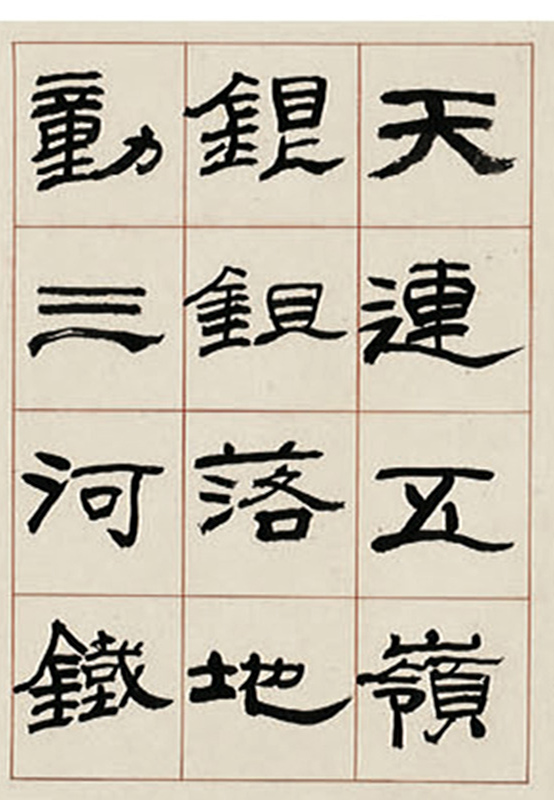 天連五嶺
銀鉏落地
動三河鐵